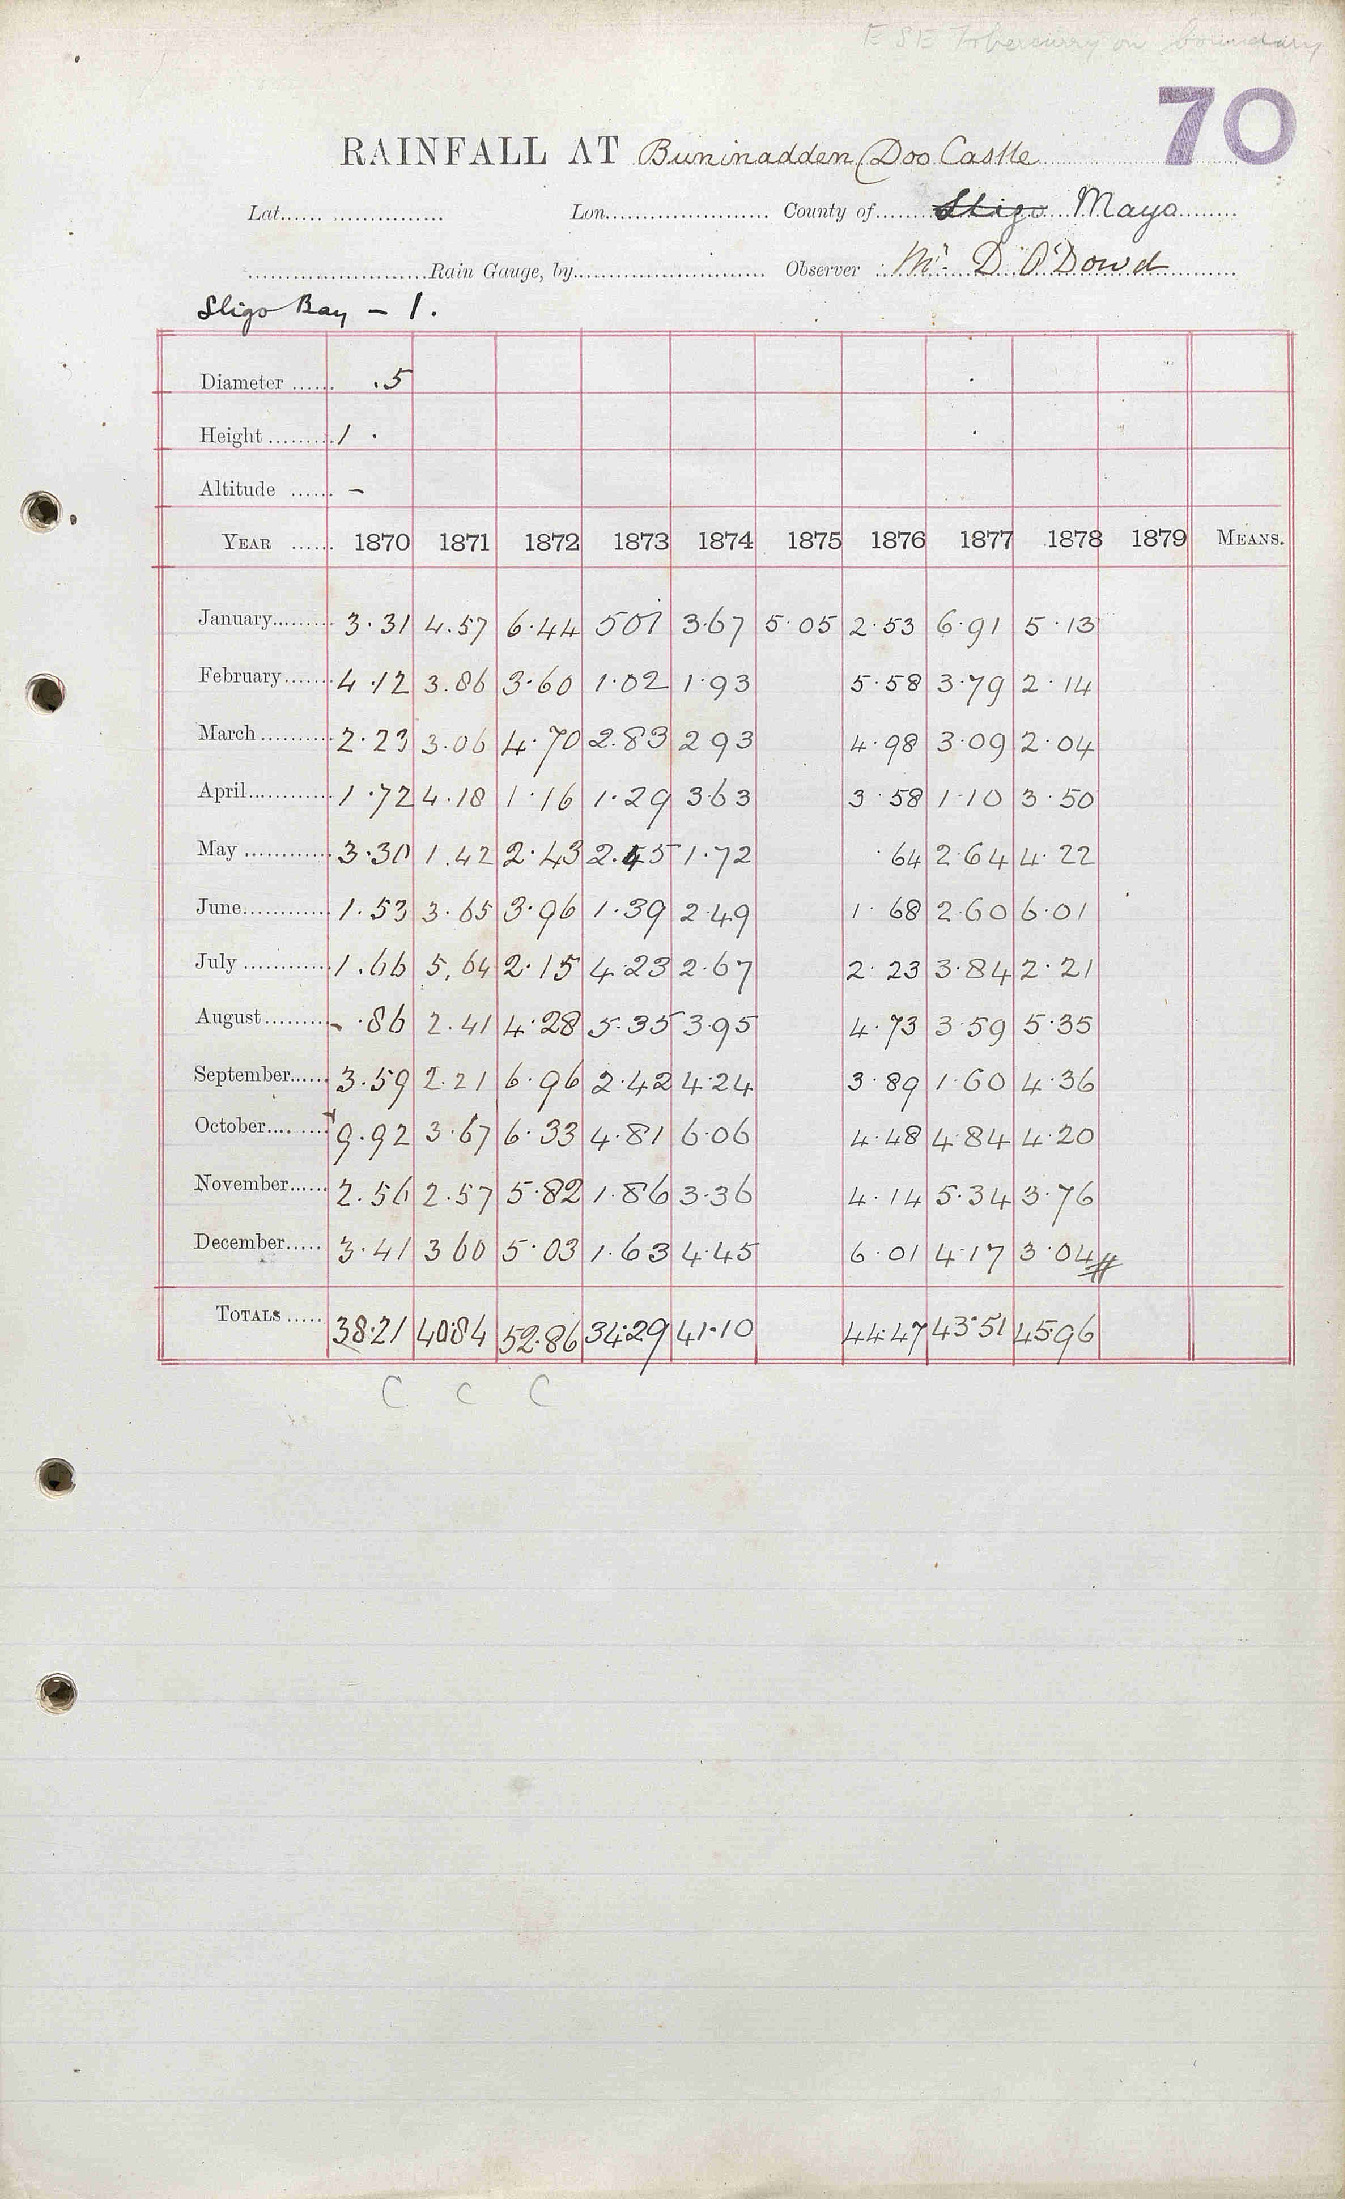 E S E Tobercurry on boundary
70
RAINFALL AT Buninadden (Doo Castle
Lat. Lon. County of Sligo Mayo
Rain Gauge, by Observer Mr. D. O'Dowd
Sligo Bay – 1.
Diameter .5
Height 1 .
Altitude –
YEAR 1870 1871 1872 1873 1874 1875 1876 1877 1878 1879 MEANS.
January 3.31 4.57 6.44 501 3.67 5.05 2.53 6.91 5.13
February 4.12 3.86 3.60 1.02 1.93 5.58 3.79 2.14
March 2.23 3.06 4.70 2.83 2 93 4.98 3.09 2.04
April 1.72 4.18 1.16 1.29 3.63 3.58 1.10 3.50
May 3.30 1.42 2.43 2.45 1.72 .64 2.64 4.22
June 1.53 3.65 3.96 1.39 2.49 1.68 2.60 6.01
July 1.66 5.64 2.15 4.23 2.67 2.23 3.84 2.21
August - .86 2.41 4.28 5.35 3.95 4.73 3.59 5.35
September 3.59 2.21 6.96 2.42 4.24 3.89 1.60 4.36
October 9.92 3.67 6.33 4.81 6.06 4.48 4.84 4.20
November 2.56 2.57 5.82 1.86 3.36 4.14 5.34 3.76
December 3.41 3 60 5.03 1.63 4.45 6.01 4.17 3.04
TOTALS 38.21 40.84 52.86 34.29 41.10 44.47 43.51 4596
C C C